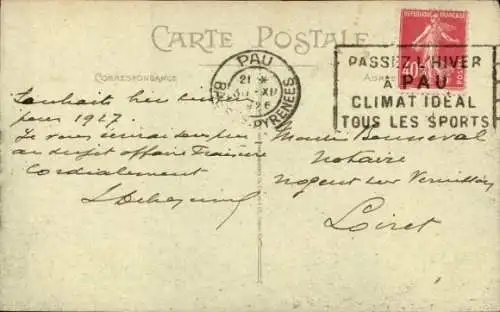 CARTE POSTALE
CORRESPONDANCE
PAU
21
30 - XII
26
BSES PYRENEES
REPUBLIQUE FRANÇAISE
40
POSTES
PASSEZ L'HIVER
A PAU
CLIMAT IDÉAL
TOUS LES SPORTS
Souhaits bien sincères
pour 1927.
Je vous
au sujet affaire
Cordialement
Notaire
Nogent sur Vernisson
Loiret